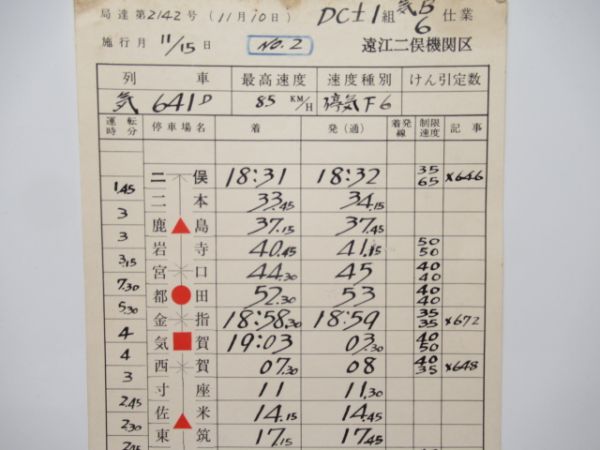 局達第2142号(11月10日) DC±1組 気B6 仕業
施行月 11/15日 NO.2 遠江二俣機関区
列車 最高速度 速度種別 けん引定数
気 641D 85 KM/H 停気F6
運転時分 停車場名 着 発(通) 着発線 制限速度 記事
二俣 18:31 18:32 35 65 ×646
1.45
二本 33.45 34.15
3
鹿島 37.15 37.45
3
岩寺 40.45 41.15 50 50
3.15
宮口 44.30 45 40 40
7.30
都田 52.30 53 40 40
5.30
金指 18:58.30 18:59 35 35 ×672
4
気賀 19:03 03.30 40 50
4
西賀 07.30 08 40 35 ×648
3
寸座 11 11.30
2.45
佐米 14.15 14.45
2.30
東筑 17.15 17.45
2.45